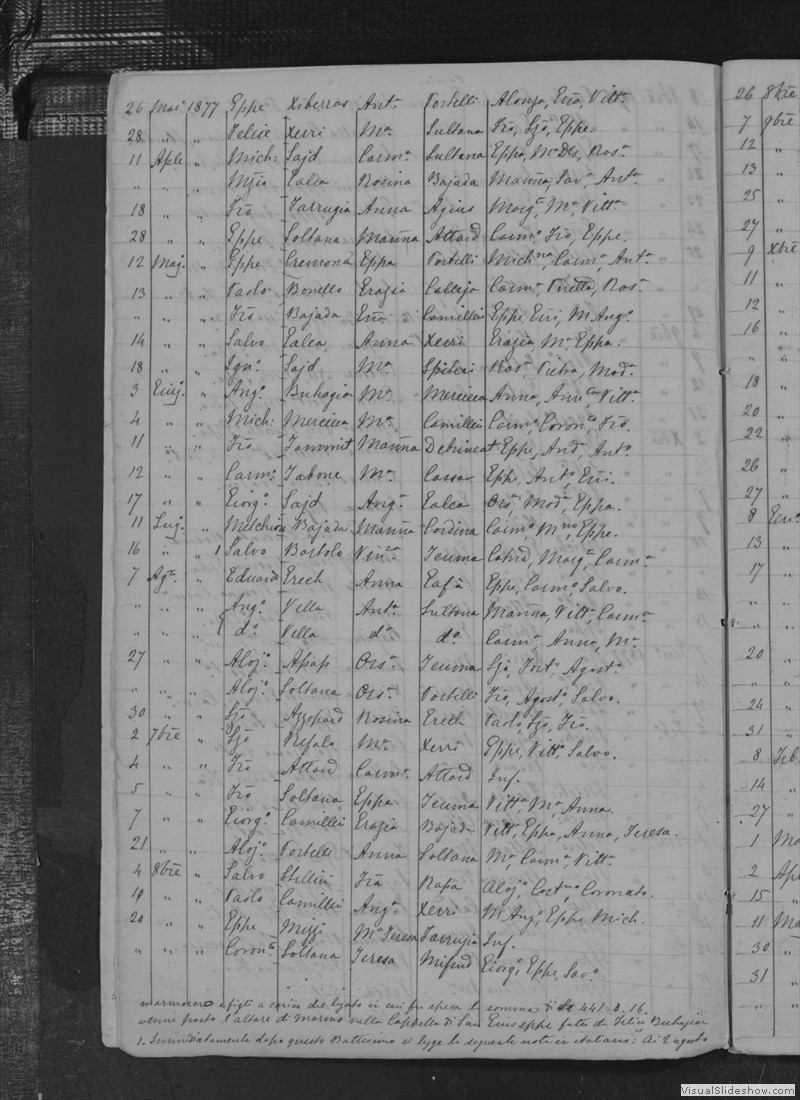 26 Mar 1877 Eppe Xiberras Ant.a Portelli Alonzo, Eño, Vitt.a
28 „ „ Felice Xerri M.a Sultana Frõ, Sjõ, Eppe.
11 Aple „ Mich: Sajd Carm.a Sultana Eppa, M.a Dls, Ros.a
„ „ „ Mjio Ealea Rosina Bajada Mariña, Sav.a Ant.a
18 „ „ Frõ Farrugia Anna Agius Marg.a, M.a, Vitt.a
28 „ „ Eppe Soltana Mariña Attard Carm.o, Frõ, Eppe.
12 Maj. „ Eppe Cremona Eppa Portelli Mich.na, Carm.a, Ant.a
13 „ „ Paolo Bonello Erazia Calleja Carm.a, Ros.a
„ „ „ Frõ Bajada Eña Camilleri Eppe, Eni, M. Ang.a
14 „ „ Salvo Ealea Anna Xerri Erazia, M.a Eppa.
18 „ „ Ign.o Sajd M.a Spiteri Ros.a Pietra, Mad.a
3 Eiuj. „ Ang.o Buhagiar M.a Mercieca Anna, Vitt.a
4 „ „ Mich: Mercieca M.a Camilleri Carm.a Coron.a Frõ.
11 „ „ Frõ Tammit Mariña Debrincat Eppe, And, Ant.o
12 „ „ Carm.o Tabone M.a Cassar Eppe, Ant.o Eni.
17 „ „ Eiorg.o Sajd Ang.a Ealea Ors.a, Mad.a, Eppa.
11 Luj. „ Melchior Bajada Mariña Cordina Carm.o, M.no, Eppe.
16 „ „ 1 Salvo Bartolo Vin.a Teuma Marg.a, Carm.a
7 Ag.to „ Eduardo Erech Anna Eafà Eppe, Carm.o Salvo.
„ „ „ Ang.o Vella Ant.a Sultana Mariña, Vitt.a, Carm.a
„ „ „ d.o Vella d.a d.a Carm.a Anna, M.a
27 „ „ Aloj.o Apap Ors.a Teuma Sjõ, Fort.o Agost.o
„ „ „ Aloj.o Soltana Ors.a Portelli Frõ, Agost.o Salvo.
30 „ „ Sjõ Azzopard Rosina Erech Paolo, Sjõ, Frõ.
2 7bre „ Sjõ Refalo M.a Xerri Eppe, Vitt.o, Salvo.
4 „ „ Frõ Attard Carm.a Attard Inf.
5 „ „ Frõ Soltana Eppa Teuma Vitt.a M.a, Anna.
7 „ „ Eiorg.o Camilleri Erazia Bajada Vitt.a, Eppa, Anna, Teresa.
21 „ „ Aloj.o Portelli Anna Soltana M.a Carm.a, Vitt.a
4 8bre „ Salvo Stellini Frã Rapa Aloj.o, Cost.no, Coronato.
10 „ „ Paolo Camilleri Ang.a Xerri M. Ang.o, Eppe, Mich.
20 „ „ Eppe Mizzi M.a Teresa Farrugia Inf.
„ „ „ Coron.to Soltana Teresa Mifsud Eiorg.o, Eppe, Sav.o
marmorar e figli a carico del legato in cui fu spesa la somma di Sc 441. 8. 16.
venne posto l'altare di marmo nella Cappella di San Eiuseppe fatto da Felice Buhagiar
1. Immediatamente dopo questo Battesimo si legge la seguente nota in italiano: Ai 2 agosto
26 8bre
7 9bre
12 „
13 „
25 „
27 „
9 Xbre
11 „
12 „
16 „
„ „
18 „
20 „
22 „
26 „
27 „
8 Een.o
13 „
17 „
„ „
„ „
20 „
„ „
24 „
31 „
8 Feb
14 „
27 „
1 Ma
2 Apl
15 „
11 Ma
30 „
31 „
„ „
VisualSlideshow.com